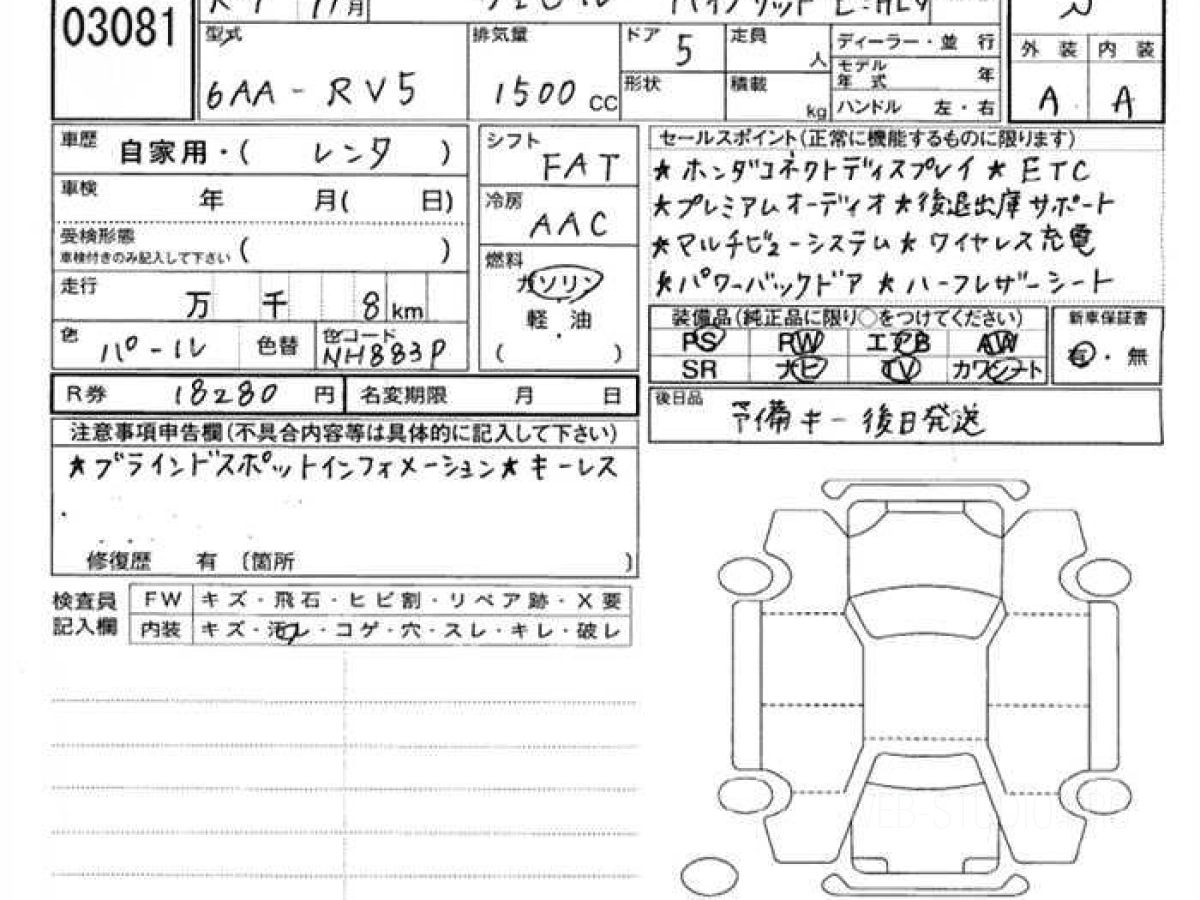 03081
月
型式
6AA-RV5
排気量
1500 CC
ドア 5
形状
定員 人
積載 kg
ディーラー・並 行
モデル年式 年
ハンドル 左・右
外 装 内 装
A A
車歴 自家用・( レンタ )
車検 年 月( 日)
受検形態
車検付きのみ記入して下さい ( )
走行 万 千 8 km
色 パール 色替 色コード NH883P
シフト FAT
冷房 AAC
燃料
ガソリン
軽・油
( )
セールスポイント(正常に機能するものに限ります)
★ホンダコネクトディスプレイ★ETC
★プレミアムオーディオ★後退出庫サポート
★マルチビューシステム★ワイヤレス充電
★パワーバックドア★ハーフレザーシート
装備品(純正品に限り○をつけてください)
PS PW エアB AW
SR ナビ TV カワシート
新車保証書
有・無
R券 18280 円 名変期限 月 日
後日品 予備キー後日発送
注意事項申告欄(不具合内容等は具体的に記入して下さい)
★ブラインドスポットインフォメーション★キーレス
修復歴 有 〔箇所 )
検査員記入欄
FW キズ・飛石・ヒビ割・リペア跡・X要
内装 キズ・汚レ・コゲ・穴・スレ・キレ・破レ